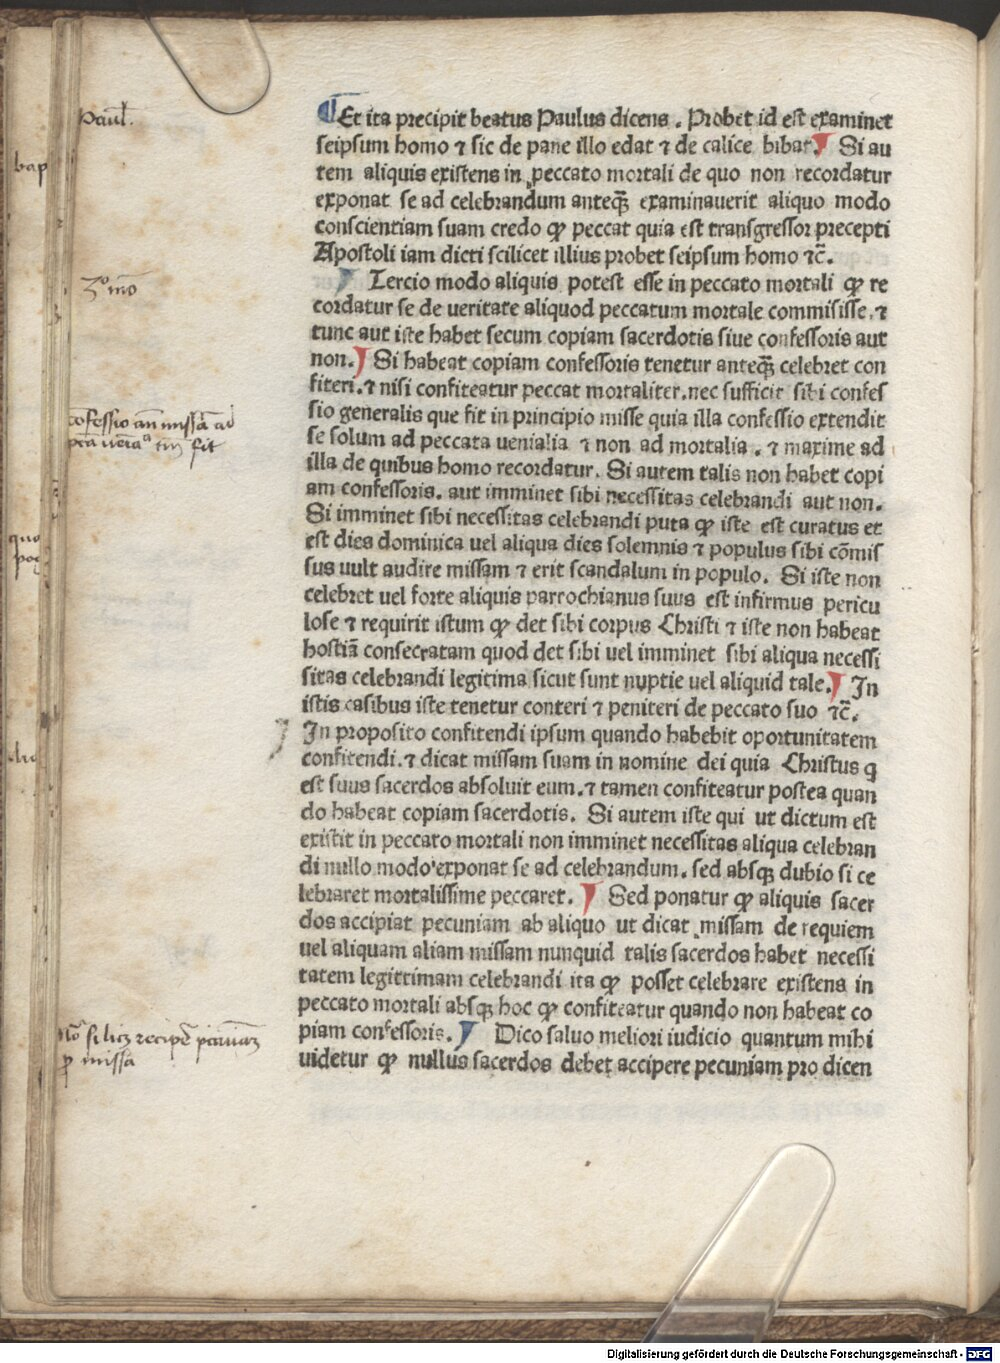 Paul̄.
bap
¶ Et ita precipit beatus Paulus dicens . Probet id est examinet
seipsum homo ⁊ sic de pane illo edat ⁊ de calice bibat. Si au
tem aliquis existens in peccato mortali de quo non recordatur
exponat se ad celebrandum anteqꝫ̄ examinauerit aliquo modo
conscientiam suam credo ꝙ peccat quia est transgressor precepti
Apostoli iam dicti scilicet illius probet seipsum homo ⁊c̄.
3º mō
Tercio modo aliquis potest esse in peccato mortali ꝙ re
cordatur se de ueritate aliquod peccatum mortale commisisse.⁊
tunc aut iste habet secum copiam sacerdotis siue confessoris aut
non. Si habeat copiam confessoris tenetur anteqꝫ̄ celebret con
fiteri.⁊ nisi confiteatur peccat mortaliter.nec sufficit sibi confes
sio generalis que fit in principio misse quia illa confessio extendit
cōfessio an̄ missā ad
pctā uēia tm̄ fit
se solum ad peccata uenialia ⁊ non ad mortalia . ⁊ maxime ad
illa de quibus homo recordatur. Si autem talis non habet copi
am confessoris. aut imminet sibi necessitas celebrandi aut non.
Si imminet sibi necessitas celebrandi puta ꝙ iste est curatus et
est dies dominica uel aliqua dies solemnis ⁊ populus sibi cōmis
sus uult audire missam ⁊ erit scandalum in populo. Si iste non
celebret uel forte aliquis parrochianus suus est infirmus pericu
lose ⁊ requirit istum ꝙ det sibi corpus Christi ⁊ iste non habeat
hostiā consecratam quod det sibi uel imminet sibi aliqua necessi
sitas celebrandi legitima sicut sunt nuptie uel aliquid tale. In
istis casibus iste tenetur conteri ⁊ peniteri de peccato suo ⁊c̄.
In proposito confitendi ipsum quando habebit oportunitatem
confitendi.⁊ dicat missam suam in nomine dei quia Christus q
est suus sacerdos absoluit eum.⁊ tamen confiteatur postea quan
do habeat copiam sacerdotis. Si autem iste qui ut dictum est
existit in peccato mortali non imminet necessitas aliqua celebran
di nullo modo exponat se ad celebrandum. sed absqꝫ dubio si ce
lebraret mortalissime peccaret. Sed ponatur ꝙ aliquis sacer
dos accipiat pecuniam ab aliquo ut dicat missam de requiem
uel aliquam aliam missam nunquid talis sacerdos habet necessi
tatem legittimam celebrandi ita ꝙ posset celebrare existens in
peccato mortali absqꝫ hoc ꝙ confiteatur quando non habeat co
piam confessoris. Dico saluo meliori iudicio quantum mihi
uidetur ꝙ nullus sacerdos debet accipere pecuniam pro dicen
recipē
ꝑ missa
Digitalisierung gefördert durch die Deutsche Forschungsgemeinschaft - DFG